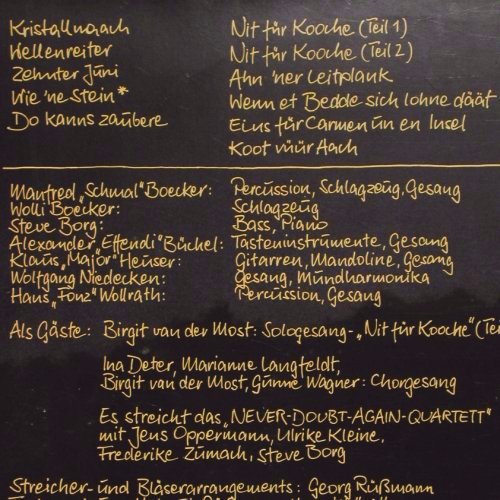 Kristallnaach
Wellenreiter
Zehnter Juni
Wie 'ne Stein*
Do kanns zaubere
Nit für Kooche (Teil 1)
Nit für Kooche (Teil 2)
Ahn 'ner Leitplank
Wenn et Bedde sich lohne däät
Eins für Carmen un en Insel
Koot vüür Aach
Manfred „Schmal" Boecker: Percussion, Schlagzeug, Gesang
Wolli Boecker: Schlagzeug
Steve Borg: Bass, Piano
Alexander „Effendi" Büchel: Tasteninstrumente, Gesang
Klaus „Major" Heuser: Gitarren, Mandoline, Gesang
Wolfgang Niedecken: Gesang, Mundharmonika
Hans „Fonz" Wollrath: Percussion, Gesang
Als Gäste: Birgit van der Most: Sologesang - „Nit für Kooche" (Tei
Ina Deter, Marianne Langfeldt,
Birgit van der Most, Günne Wagner: Chorgesang
Es streicht das „NEVER-DOUBT-AGAIN-QUARTETT"
mit Jens Oppermann, Ulrike Kleine,
Frederike Zumach, Steve Borg
Streicher- und Bläserarrangements: Georg Rüßmann